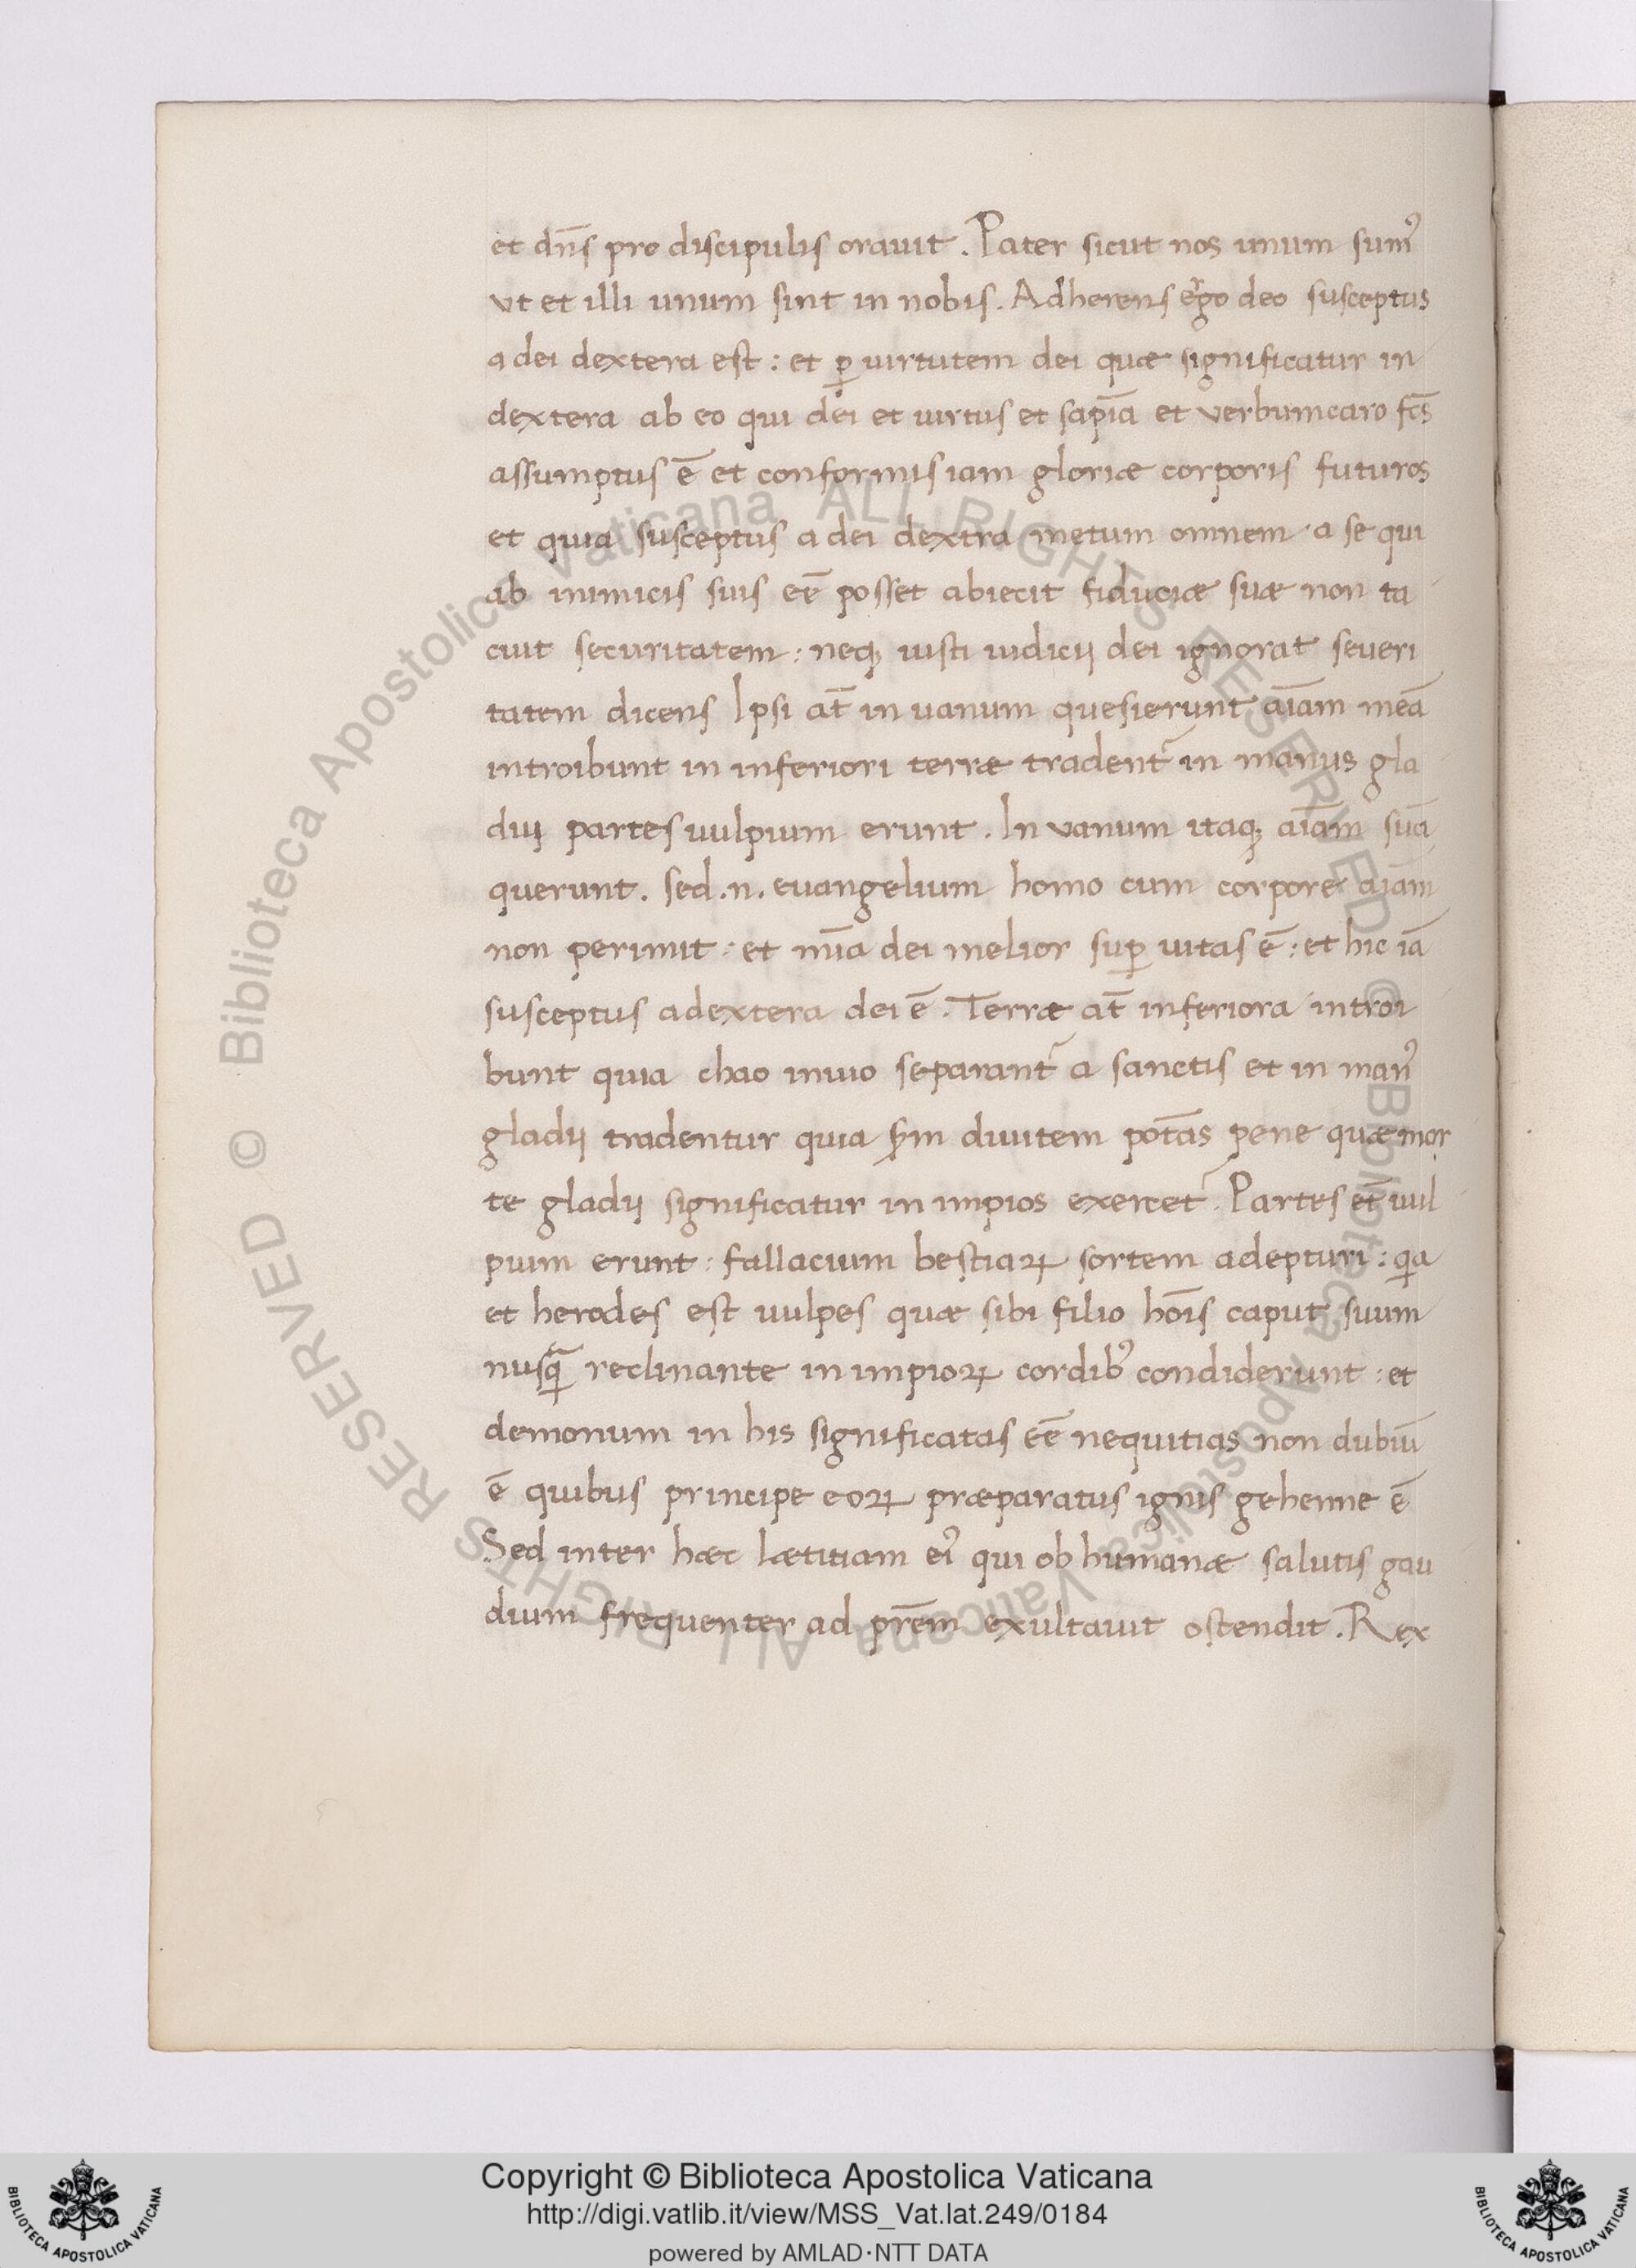 et dn̄s pro discipulis orauit. Pater sicut nos unum sumꝰ
vt et illi unum sint in nobis. Adherens ergo deo susceptus
a dei dextera est : et ꝑ uirtutem dei quæ significatur in
dextera ab eo qui dei et uirtus et sapīa et verbum caro fc̄s
assumptus ē et conformis iam gloriæ corporis futuros
et quia susceptus a dei dextra metum omnem a se qui
ab inimicis suis eē posset abiecit fiduciæ suæ non ta
cuit securitatem : neqꝫ iusti iudicij dei ignorat seueri
tatem dicens Ipsi at̄ in uanum quesierunt aīam meā
introibunt in inferiori terræ tradent᷑ in manus gla
dij partes uulpium erunt. In vanum itaqꝫ aīam suā
querunt. sed .n. euangelium homo cum corpore aīam
non perimit : et mīa dei melior suꝑ uitas ē : et hic iā
susceptus a dextera dei ē. Terræ at̄ inferiora introi
bunt quia chao inuio separant᷑ a sanctis et in manꝰ
gladij tradentur quia sꝫm diuitem potās pene quæ mor
te gladij significatur in impios exercet᷑. Partes et̄ uul
pium erunt : fallacium bestiaꝝ sortem adepturi : qia
et herodes est uulpes quæ sibi filio hoīs caput suum
nusꝗ̄ reclinante in impioꝝ cordibꝰ condiderunt : et
demonum in his significatas eē nequitias non dubiū
ē quibus principe eoꝝ præparatus ignis gehenne ē
Sed inter hæc lætitiam eiꝰ qui ob humanæ salutis gau
dium frequenter ad pr̄em exultauit ostendit. Rex
© Biblioteca Apostolica Vaticana ALL RIGHTS RESERVED
© Biblioteca Apostolica Vaticana ALL RIGHTS RESERVED
BIBLIOTECA APOSTOLICA VATICANA
Copyright © Biblioteca Apostolica Vaticana
http://digi.vatlib.it/view/MSS_Vat.lat.249/0184
powered by AMLAD·NTT DATA
BIBLIOTECA APOSTOLICA VATICANA